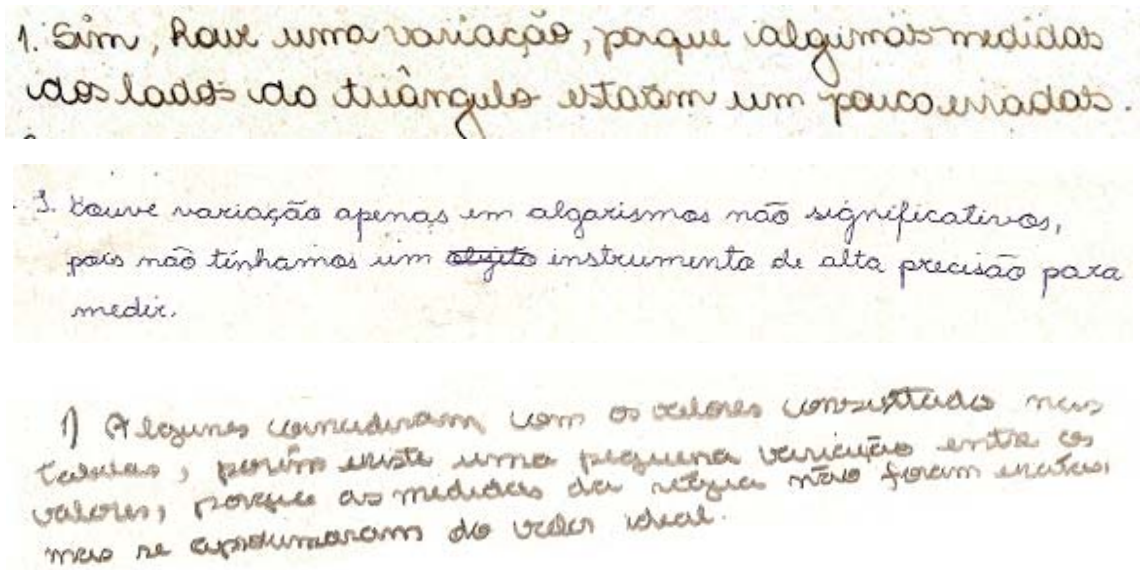 1. Sim, have uma variação, porque algumas medidas
dos lados do triângulo estavam um pouco erradas.
1. Houve variação apenas em algarismos não significativos,
pois não tínhamos um objeto instrumento de alta precisão para
medir.
1) Algunes coincidiram com os valores consultado nas
tabelas, porém existe uma pequena variação entre os
valores, porque as medidas da régua não foram exatas,
mas se aproximaram do valor ideal.